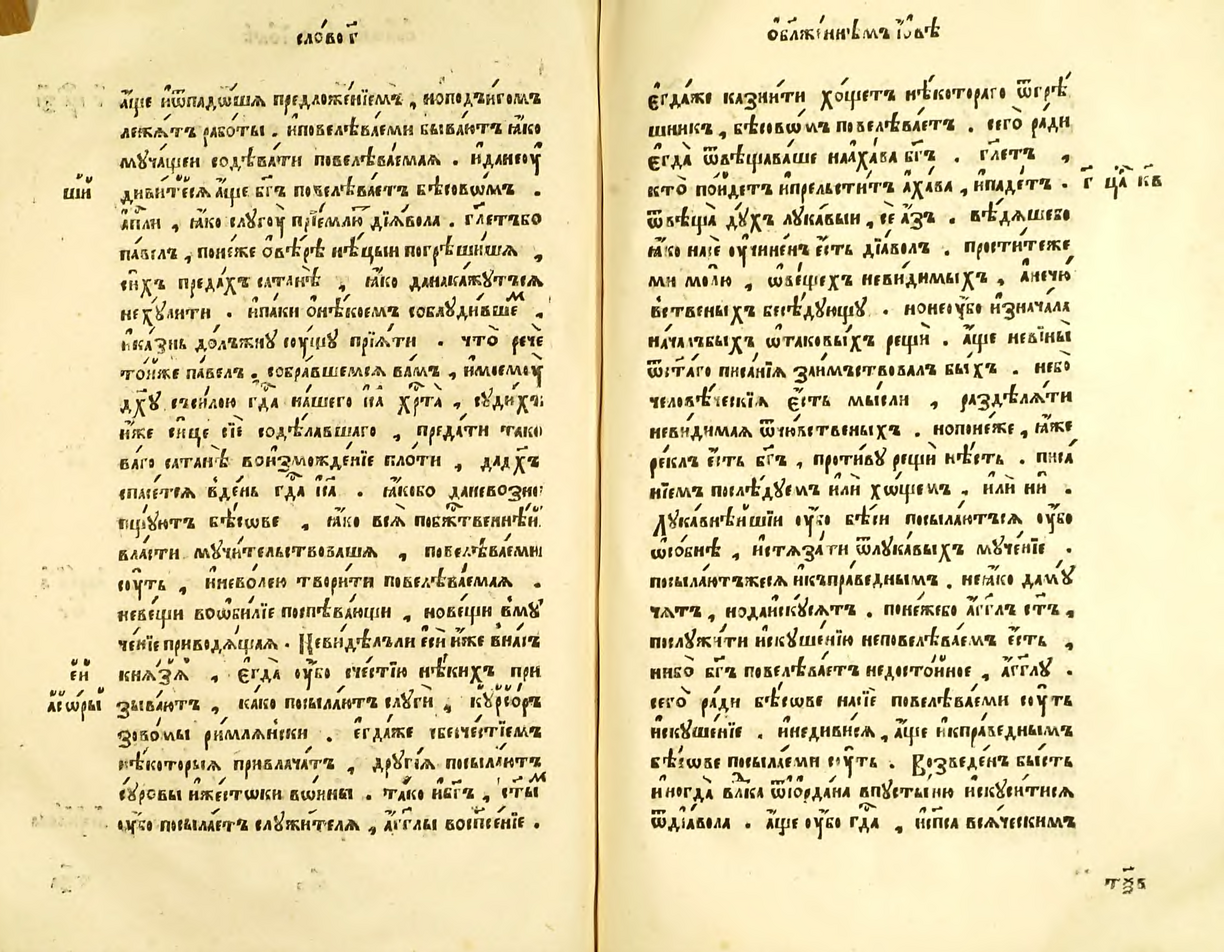 сло́во г҃
а҆́ще и҆ѿпадѡ́шѧ предложе́нїемъ , ноподви́гомъ
лежа́тъ рабо́ты . и҆повелѣва́еми быва́ютъ ꙗ҆́ко
мꙋ́чащеи содѣва́ти повелѣва́емаѧ . и҆данеоу҆
диви́тсѧ а҆́ще бг҃ъ повелѣва́етъ бѣсовѡ́мъ .
а҆п҃ли , ꙗ҆́ко слꙋго́ю прїе́млю дїѧ́вола . гл҃етъбо
па́велъ , поне́же о҆вѣ́рѣ нѣ́цыи погрѣши́шѧ ,
си́хъ преда́хъ сатанѣ̀ , ꙗ҆́ко данака́жꙋтъсѧ
нехꙋ́лити . и҆па́ки о҆нѣ́коемъ соблꙋди́вшемъ ,
и҆ка́знь до́лъжнꙋ сꙋ́щꙋ прїѧ́ти . что̀ рече́
то́йже па́велъ . собра́вшемсѧ ва́мъ , и҆моемꙋ́
дх҃ꙋ съси́лою гд҃а на́шего і҆с҃а хр҃та̀ , сꙋди́хъ
и҆́же си́це сїѐ содѣ́лавшаго , преда́ти тако
ва́го сатанѣ̀ воизможде́нїе пло́ти , дадх҃ъ
спасе́тсѧ вде́нь гд҃а і҆с҃а . ꙗ҆́кобо даневозне
пщꙋ́ютъ бѣ́сове , ꙗ҆́ко всѧ̀ побж҃твеннѣй
вла́сти мꙋчи́тельствовашѧ , повелѣва́еми
сꙋ́ть , и҆нево́лею твори́ти повелѣва́емаѧ .
неве́щи воѡби́лїе поспѣва́ющи , нове́щи вмꙋ
че́нїе приводѧ́щаѧ . Неви́дѣлъли є҆сѝ и҆́же внаі҆хъ
кнѧ́зѧ , є҆гда̀ оу҆́бо сче́стїю нѣ́кихъ при
зыва́ютъ , ка́ко посыла́ютъ слꙋгѝ , кꙋрсо́ръ
зово́мы ри́млѧнски . є҆гда́же збезче́стїемъ
нѣ́которыѧ привлача́тъ , дрꙋгі́ѧ посыла́ютъ
сꙋро́вы и҆жесто́ки во́ины . та́ко и҆бг҃ъ , ст҃ымъ
оу҆́бо посыла́етъ слꙋжи́телѧ , а҆́гг҃лы воспс҃е́нїе .
ші́й
е҆́й
а҆сѡ́ры
о҆бл҃же́ннѣмъ і҆ѡ́вѣ
є҆гда́же казни́ти хо́щетъ нѣ́котораго ѿгрѣ́
шникъ , бѣсовѡ́мъ повелѣва́етъ . сего̀ ра́ди
є҆гда̀ ѿвѣщава́ше наа҆ха́ва бг҃ъ . гл҃етъ ,
кто̀ по́йдетъ и҆прельсти́тъ а҆ха́ва , и҆паде́тъ .
ѿвѣща̀ дꙋ́хъ лꙋка́выи , се а҆́зъ . вѣ́дѧшебо
ꙗ҆́ко насїѐ оу҆чине́нъ є҆́сть дїа́волъ . прости́теже
ми мо́лю , ѡ҆ве́щехъ неви́димыхъ , а҆нечю́
вственыхъ бесѣ́дꙋющꙋ . нонеоу҆́бо и҆знача́ла
нача́лъбыхъ ѡ҆такобы́хъ ре́щи . а҆́ще невїны̀
ѿст҃а́го писа́нїѧ заи́мъствовалъ бы́хъ . небо
человѣ́ческїѧ є҆́сть мы́сли , раздѣлѧ́ти
неви́димаѧ ѿчю́вственыхъ . нопоне́же , ꙗ҆́же
ре́клъ є҆́сть бг҃ъ , проти́вꙋ рещѝ нѣ́сть . писа́
нїемъ послѣ́дꙋемъ и҆́ли хо́щемъ , и҆́ли нѝ .
Лꙋка́внѣйшїи оу҆́бо бѣ́си посыла́ютъсѧ оу҆́бо
ѡ҆со́бнѣ , и҆стѧза́ти ѿлꙋка́выхъ мꙋче́нїе .
посыла́ютъжесѧ и҆къпра́веднымъ , неꙗ҆́ко дамꙋ́
чатъ , ноданскꙋсѧ́тъ . поне́жебо а҆́гг҃лъ ст҃ъ ,
послꙋжи́ти и҆скꙋше́нїю неповелѣва́емъ є҆́сть ,
нибо̀ бг҃ъ повелѣва́етъ недосто́йное , а҆́гг҃лꙋ .
сего̀ ра́ди бѣ́сове насїѐ повелѣва́еми сꙋ́ть
и҆скꙋше́нїе . и҆недиви́сѧ , а҆́ще и҆кпра́веднымъ
бѣ́сове посыла́еми сꙋ́ть . Возведе́нъ бы́сть
и҆ногда̀ вл҃ка ѿі҆ѻрда́на впꙋсты́ню и҆скꙋси́тисѧ
ѿдїа́вола . а҆́ще оу҆́бо гд҃а , и҆сп҃са всѧ́ческимъ
г҃ цр҃ кв
тѯ҃в